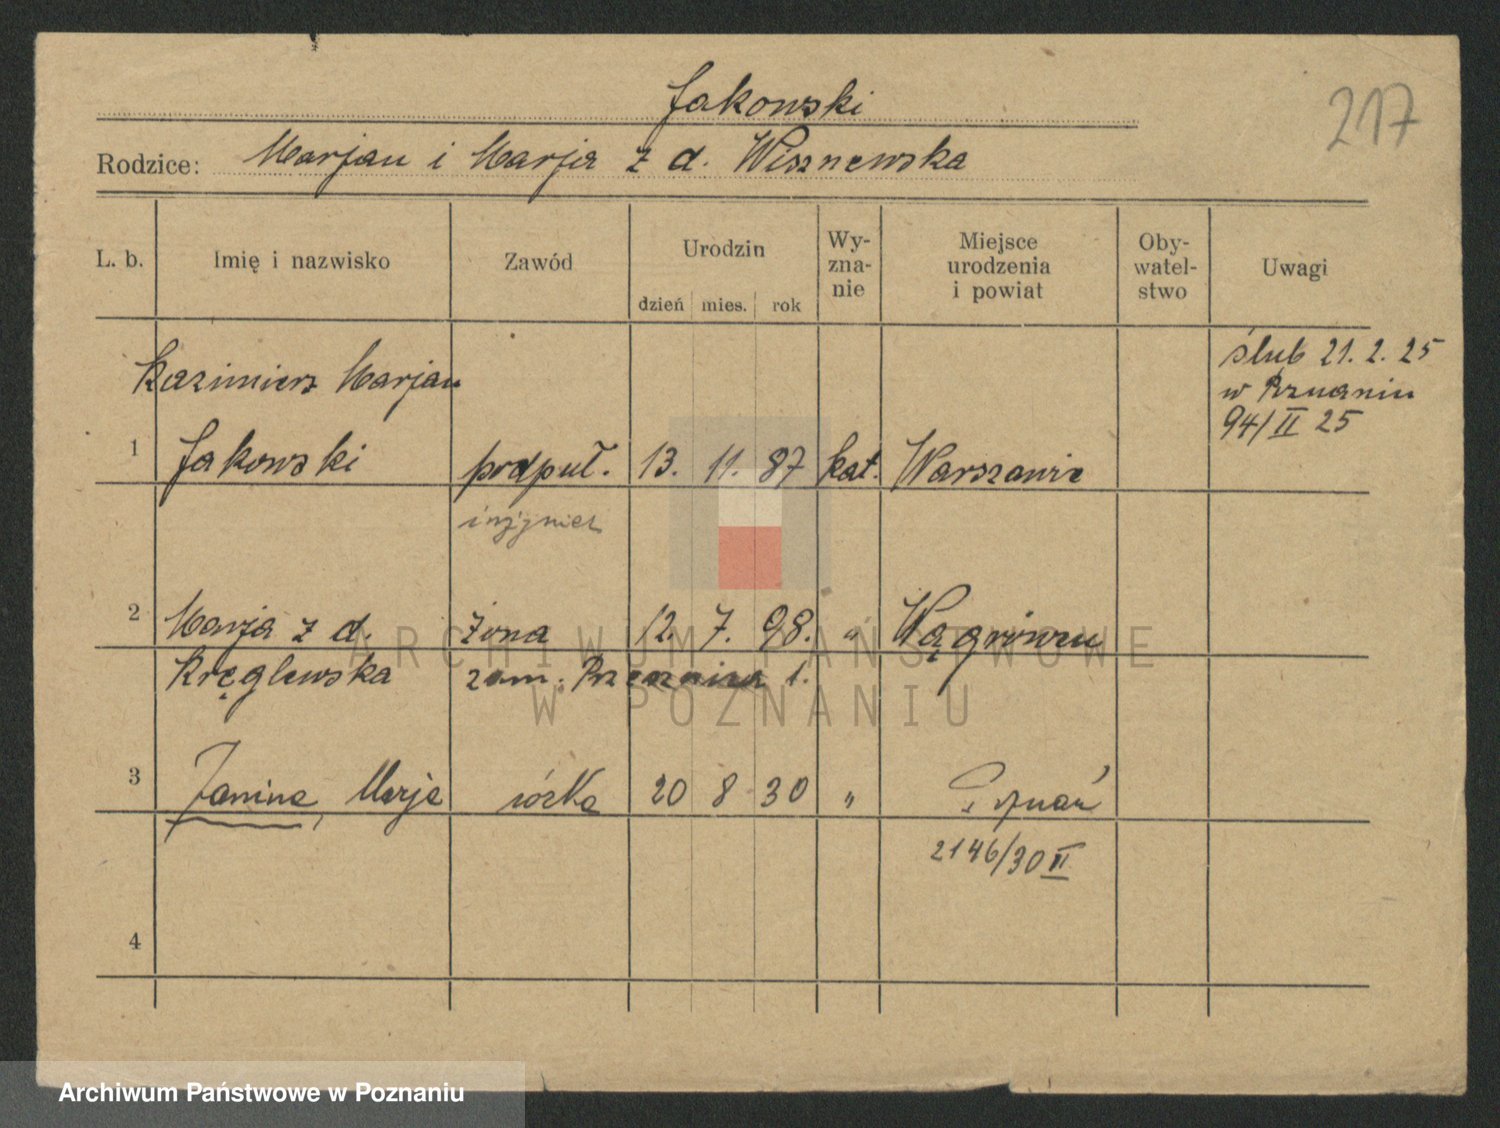 Jakowski
217
Rodzice: Marjan i Marja z d. Wisznewska
L. b. Imię i nazwisko Zawód Urodzin dzień mies. rok Wy-zna-nie Miejsce urodzenia i powiat Oby-watel-stwo Uwagi
ślub 21. 2. 25
w Poznaniu
94/II 25
Kazimierz Marjan
1 Jakowski podpuł. 13. 11. 87 kat. Warszawie
inżynier
2 Marja z d. żona 12. 7. 98. " Wągrówcu
Kręglewska zam. 1.
3 Janina, Marja córka 20 8 30 " Poznań
2146/30 II
4
ARCHIWUM PAŃSTWOWE
W POZNANIU
Archiwum Państwowe w Poznaniu